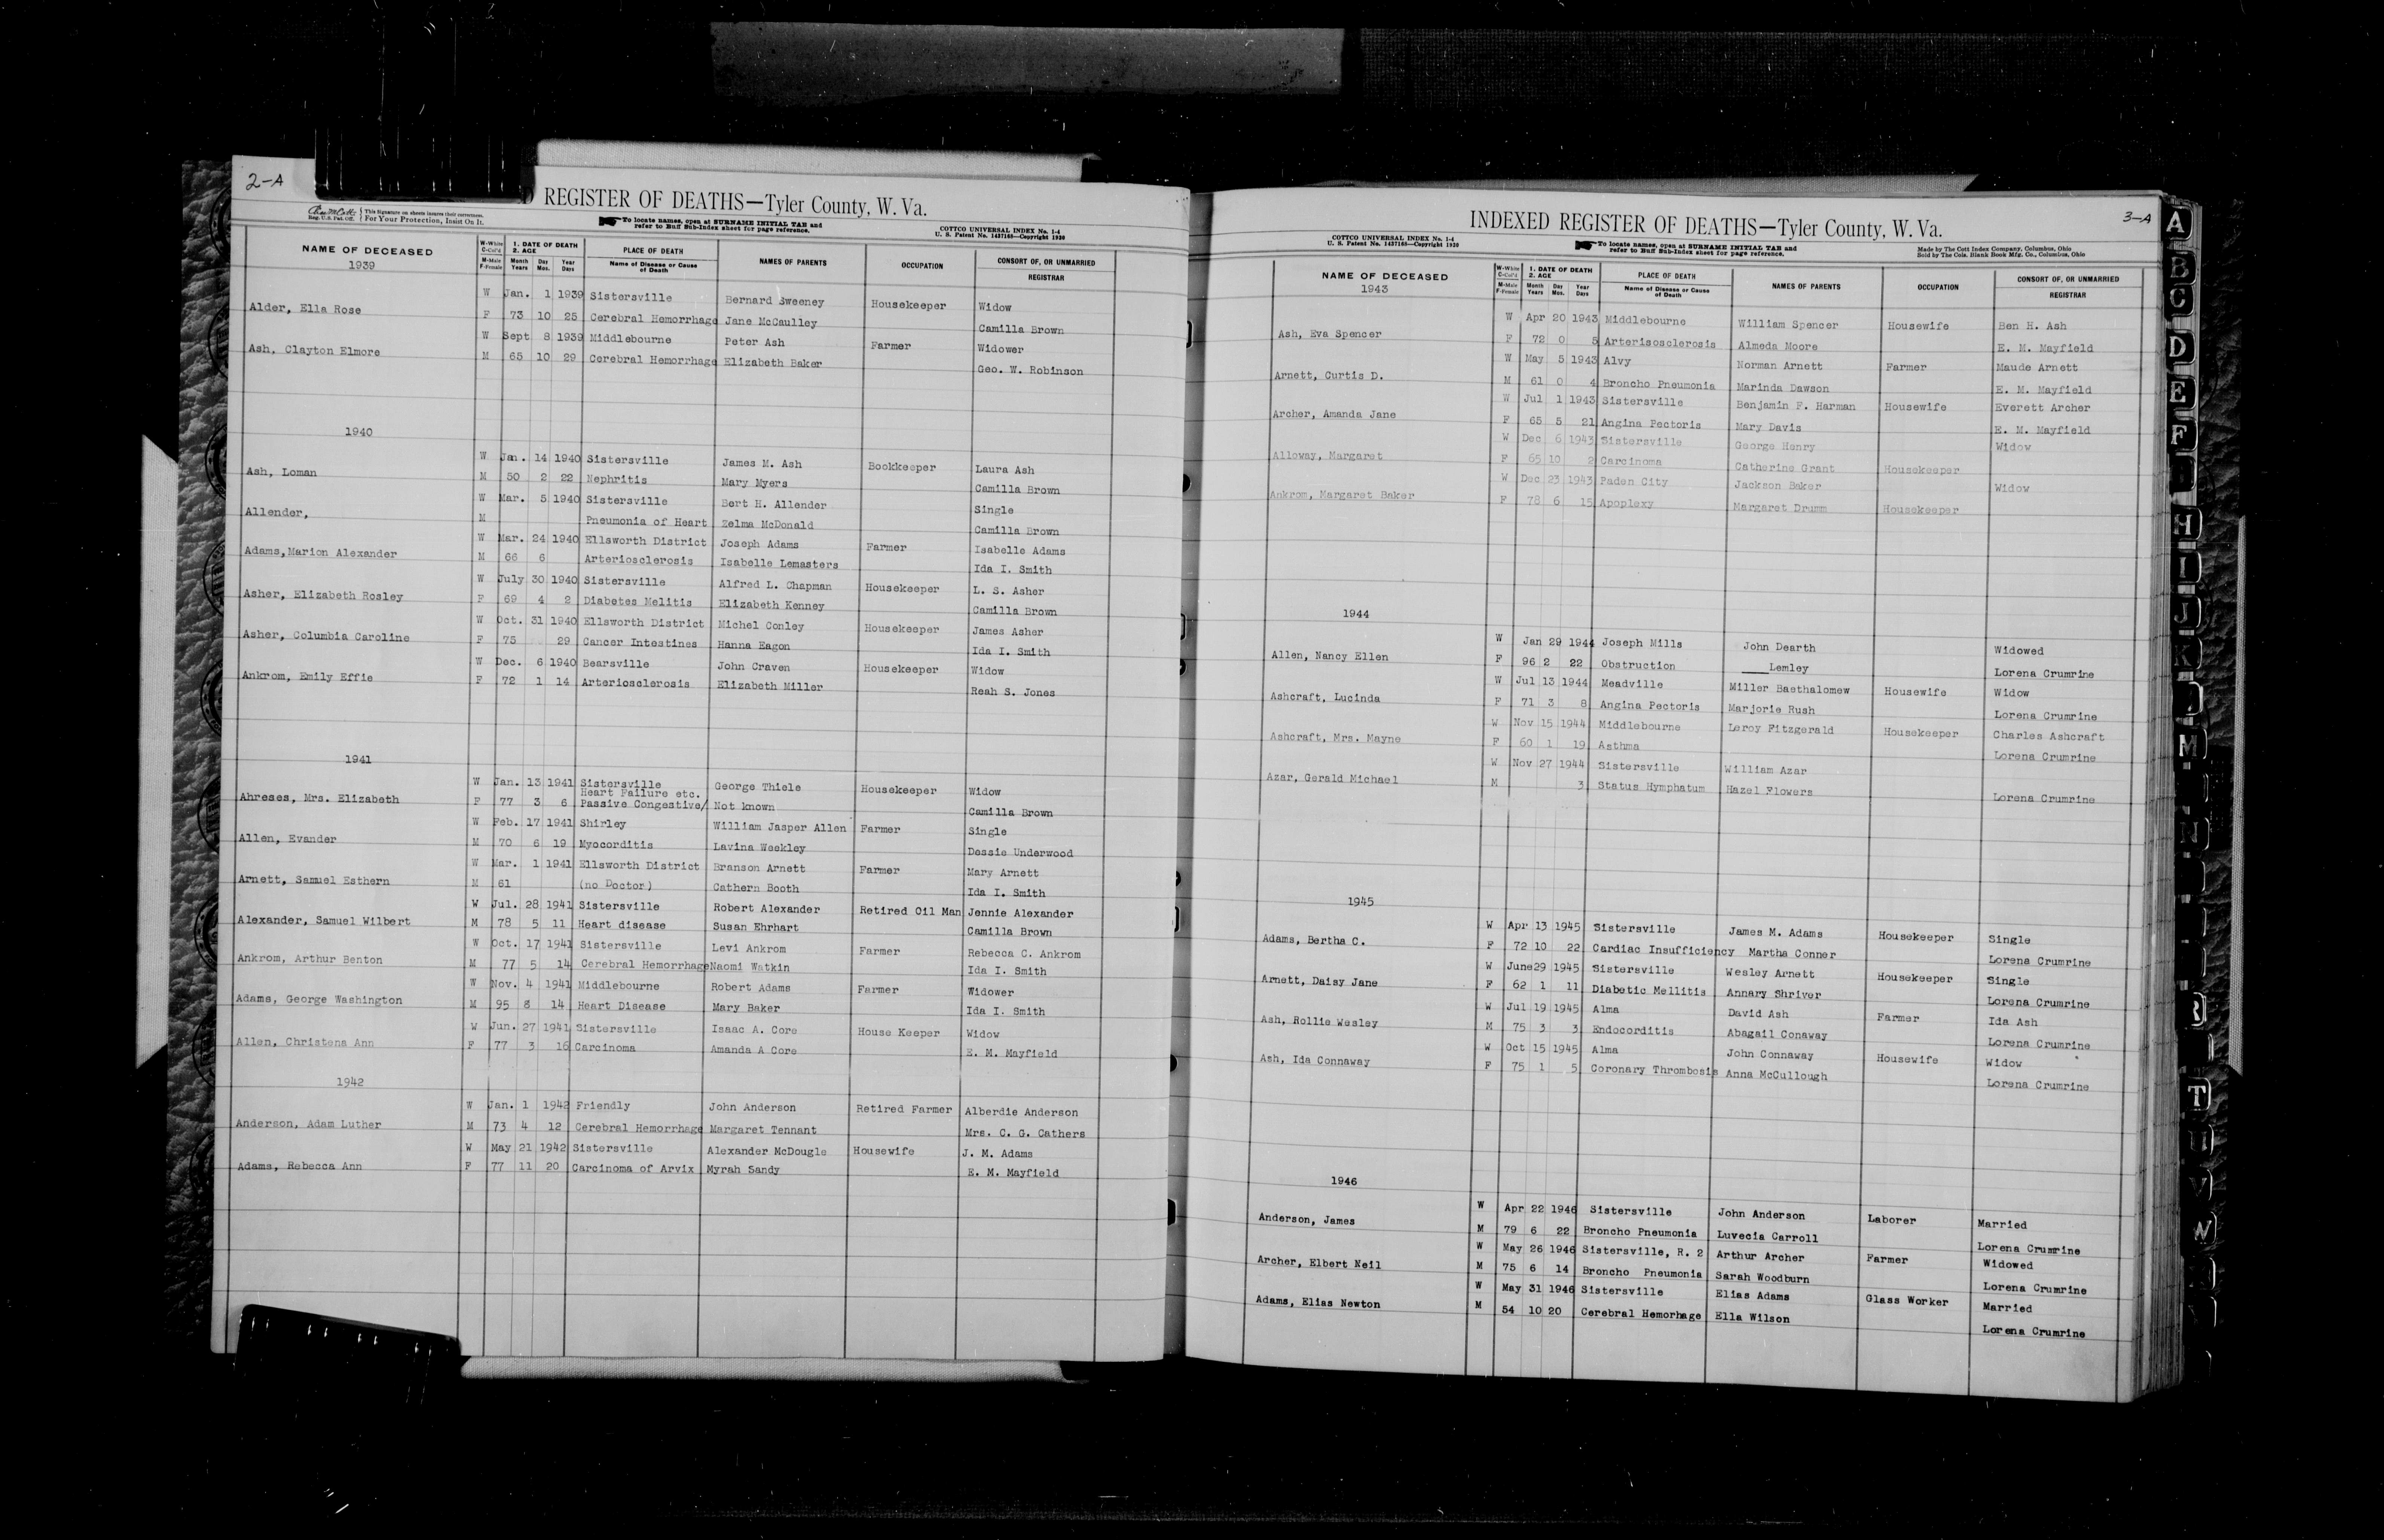 2-A
D REGISTER OF DEATHS—Tyler County, W. Va.
Reg. U.S. Pat. Off. This Signature on sheets insures their correctness. For Your Protection, Insist On It.
To locate names, open at SURNAME INITIAL TAB and
refer to Buff Sub-Index sheet for page reference.
COTTCO UNIVERSAL INDEX No. 1-4
U. S. Patent No. 1437165—Copyright 1930
NAME OF DECEASED W-White C-Col'd M-Male F-Female 1. DATE OF DEATH 2. AGE Month Day Year Years Mos. Days PLACE OF DEATH Name of Disease or Cause of Death NAMES OF PARENTS OCCUPATION CONSORT OF, OR UNMARRIED REGISTRAR
1939
W Jan. 1 1939 Sistersville Bernard Sweeney Housekeeper Widow
Alder, Ella Rose F 73 10 25 Cerebral Hemorrhage Jane McCaulley Camilla Brown
W Sept 8 1939 Middlebourne Peter Ash Farmer Widower
Ash, Clayton Elmore M 65 10 29 Cerebral Hemorrhage Elizabeth Baker Geo. W. Robinson
1940
W Jan. 14 1940 Sistersville James M. Ash Bookkeeper Laura Ash
Ash, Loman M 50 2 22 Nephritis Mary Myers Camilla Brown
W Mar. 5 1940 Sistersville Bert H. Allender Single
Allender, M Pneumonia of Heart Zelma McDonald Camilla Brown
W Mar. 24 1940 Ellsworth District Joseph Adams Farmer Isabelle Adams
Adams,Marion Alexander M 66 6 Arteriosclerosis Isabelle Lemasters Ida I. Smith
W July 30 1940 Sistersville Alfred L. Chapman Housekeeper L. S. Asher
Asher, Elizabeth Rosley F 69 4 2 Diabetes Melitis Elizabeth Kenney Camilla Brown
W Oct. 31 1940 Ellsworth District Michel Conley Housekeeper James Asher
Asher, Columbia Caroline F 75 29 Cancer Intestines Hanna Eagon Ida I. Smith
W Dec. 6 1940 Bearsville John Craven Housekeeper Widow
Ankrom, Emily Effie F 72 1 14 Arteriosclerosis Elizabeth Miller Reah S. Jones
1941
W Jan. 13 1941 Sistersville George Thiele Housekeeper Widow
Heart Failure etc.
Ahreses, Mrs. Elizabeth F 77 3 6 Passive Congestive/ Not known Camilla Brown
W Feb. 17 1941 Shirley William Jasper Allen Farmer Single
Allen, Evander M 70 6 19 Myocorditis Lavina Weekley Dessie Underwood
W Mar. 1 1941 Ellsworth District Branson Arnett Farmer Mary Arnett
Arnett, Samuel Esthern M 61 (no Doctor) Cathern Booth Ida I. Smith
W Jul. 28 1941 Sistersville Robert Alexander Retired Oil Man Jennie Alexander
Alexander, Samuel Wilbert M 78 5 11 Heart disease Susan Ehrhart Camilla Brown
W Oct. 17 1941 Sistersville Levi Ankrom Farmer Rebecca C. Ankrom
Ankrom, Arthur Benton M 77 5 14 Cerebral Hemorrhage Naomi Watkin Ida I. Smith
W Nov. 4 1941 Middlebourne Robert Adams Farmer Widower
Adams, George Washington M 95 8 14 Heart Disease Mary Baker Ida I. Smith
W Jun. 27 1941 Sistersville Isaac A. Core House Keeper Widow
Allen, Christena Ann F 77 3 16 Carcinoma Amanda A Core E. M. Mayfield
1942
W Jan. 1 1942 Friendly John Anderson Retired Farmer Alberdie Anderson
Anderson, Adam Luther M 73 4 12 Cerebral Hemorrhage Margaret Tennant Mrs. C. G. Cathers
W May 21 1942 Sistersville Alexander McDougle Housewife J. M. Adams
Adams, Rebecca Ann F 77 11 20 Carcinoma of Arvix Myrah Sandy E. M. Mayfield
3-A
INDEXED REGISTER OF DEATHS—Tyler County, W. Va.
COTTCO UNIVERSAL INDEX No. 1-4
U. S. Patent No. 1437165—Copyright 1930
To locate names, open at SURNAME INITIAL TAB and
refer to Buff Sub-Index sheet for page reference.
Made by The Cott Index Company, Columbus, Ohio
Sold by The Cols. Blank Book Mfg. Co., Columbus, Ohio
NAME OF DECEASED W-White C-Col'd M-Male F-Female 1. DATE OF DEATH 2. AGE Month Day Year Years Mos. Days PLACE OF DEATH Name of Disease or Cause of Death NAMES OF PARENTS OCCUPATION CONSORT OF, OR UNMARRIED REGISTRAR
1943
W Apr 20 1943 Middlebourne William Spencer Housewife Ben H. Ash
Ash, Eva Spencer F 72 0 5 Arterisosclerosis Almeda Moore E. M. Mayfield
W May 5 1943 Alvy Norman Arnett Farmer Maude Arnett
Arnett, Curtis D. M 61 0 4 Broncho Pneumonia Marinda Dawson E. M. Mayfield
W Jul 1 1943 Sistersville Benjamin F. Harman Housewife Everett Archer
Archer, Amanda Jane F 65 5 21 Angina Pectoris Mary Davis E. M. Mayfield
W Dec 6 1943 Sistersville George Henry Widow
Alloway, Margaret F 65 10 2 Carcinoma Catherine Grant Housekeeper
W Dec 23 1943 Paden City Jackson Baker Widow
Ankrom, Margaret Baker F 78 6 15 Apoplexy Margaret Drumm Housekeeper
1944
W Jan 29 1944 Joseph Mills John Dearth Widowed
Allen, Nancy Ellen F 96 2 22 Obstruction ____Lemley Lorena Crumrine
W Jul 13 1944 Meadville Miller Baethalomew Housewife Widow
Ashcraft, Lucinda F 71 3 8 Angina Pectoris Marjorie Rush Lorena Crumrine
W Nov 15 1944 Middlebourne Leroy Fitzgerald Housekeeper Charles Ashcraft
Ashcraft, Mrs. Mayne F 60 1 19 Asthma Lorena Crumrine
W Nov 27 1944 Sistersville William Azar
Azar, Gerald Michael M 3 Status Hymphatum Hazel Flowers Lorena Crumrine
1945
W Apr 13 1945 Sistersville James M. Adams Housekeeper Single
Adams, Bertha C. F 72 10 22 Cardiac Insufficiency Martha Conner Lorena Crumrine
W June29 1945 Sistersville Wesley Arnett Housekeeper Single
Arnett, Daisy Jane F 62 1 11 Diabetic Mellitis Annary Shriver Lorena Crumrine
W Jul 19 1945 Alma David Ash Farmer Ida Ash
Ash, Rollie Wesley M 75 3 3 Endocorditis Abagail Conaway Lorena Crumrine
W Oct 15 1945 Alma John Connaway Housewife Widow
Ash, Ida Connaway F 75 1 5 Coronary Thrombosis Anna McCullough Lorena Crumrine
1946
W Apr 22 1946 Sistersville John Anderson Laborer Married
Anderson, James M 79 6 22 Broncho Pneumonia Luvecia Carroll Lorena Crumrine
W May 26 1946 Sistersville, R. 2 Arthur Archer Farmer Widowed
Archer, Elbert Neil M 75 6 14 Broncho Pneumonia Sarah Woodburn Lorena Crumrine
W May 31 1946 Sistersville Elias Adams Glass Worker Married
Adams, Elias Newton M 54 10 20 Cerebral Hemorhage Ella Wilson Lorena Crumrine
A
B
C
D
E
F
H
I
J
K
M
N
R
T
W